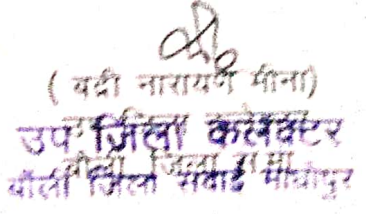 ( बद्री नारायण मीना)
उप जिला कलेक्टर
बौंली जिला सवाई माधोपुर